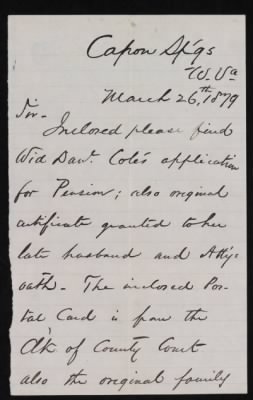 Capon Sp'gs
W. Va
March 26th, 1879
Sir-
Inclosed please find
Wid Danl. Cole's application
for Pension; also original
certificate granted to her
late husband and Att'ys
oath - The inclosed Pos-
tal Card is from the
Cl'k of County Court
also the original family